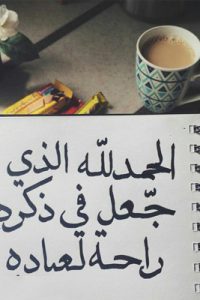 الحمدلله الذي
جّعل في ذكره
راحة لعباده